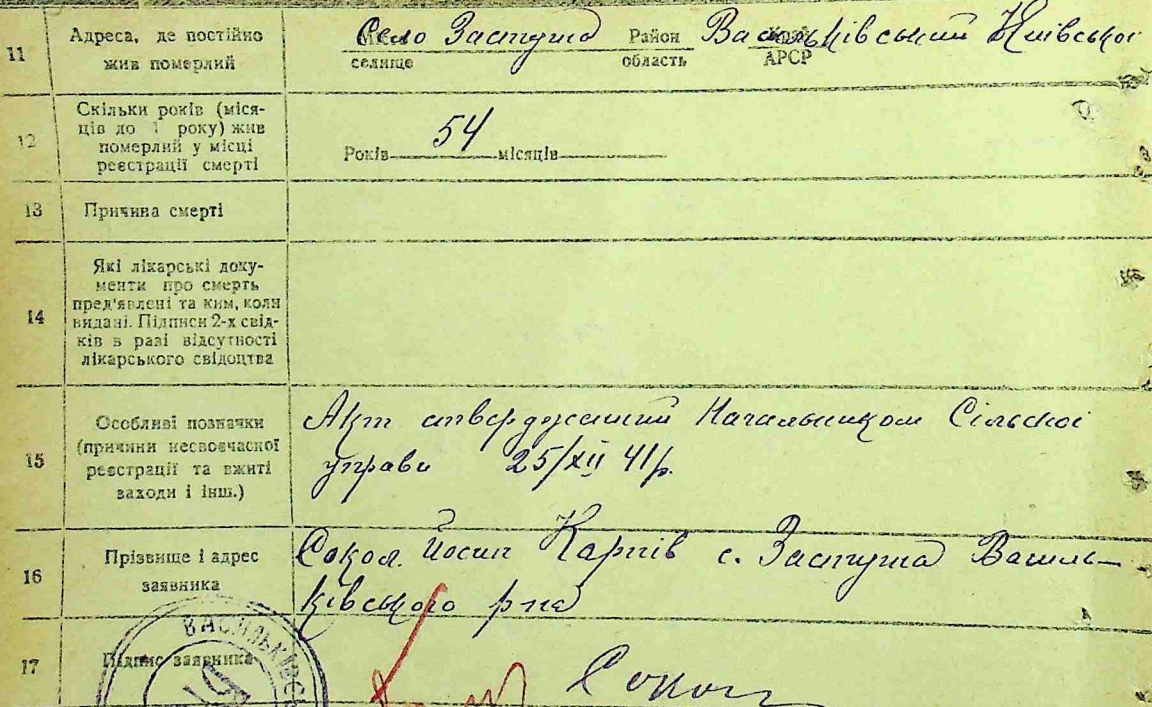 11 Адреса, де постійно
жив померлий
Село Застугна Район Васильківський Київської
селище область АРСР
12 Скільки років (міся-
ців до 1 року) жив
померлий у місці
реєстрації смерті
Років 54 місяців
13 Причина смерті
14 Які лікарські доку-
менти про смерть
пред'явлені та ким, коли
видані. Підписи 2-х свід-
ків в разі відсутності
лікарського свідоцтва
15 Особливі позначки
(причини несвоєчасної
реєстрації та вжиті
заходи і інш.)
Акт стверджений Начальником Сільскої
управи 25/XII 41р.
16 Прізвище і адрес
заявника
Сокол Йосип Карпів с. Застугна Василь-
ківського р-на
17 Підпис заявника
Сокол